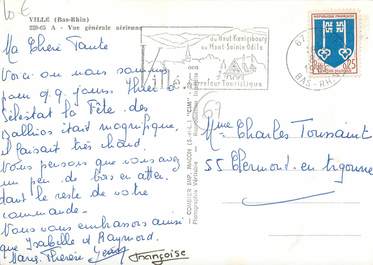 10€
VILLÉ (Bas-Rhin)
Vue générale aérienne
Ma Chère Tante
Voici où nous sommes
pour qq. jours. Hier à
Sélestat la Fête des
Dalhias était magnifique,
il faisait très chaud.
Nous pensons que vous avez
un peu de bois en attendant
dant le reste de votre
commande.
Nous vous embrassons ainsi
que Isabelle et Raymond.
Marie Thérèse
Françoise
du Haut Kœnigsbourg
au Mont Sainte Odile
Villé
Carrefour Touristique
67
BAS-RHIN
MONT-DE-MARSAN
0,25
67
Mme Charles Toussaint
55 Clermont-en-Argonne
COMBIER IMP. MACON
"CIM"